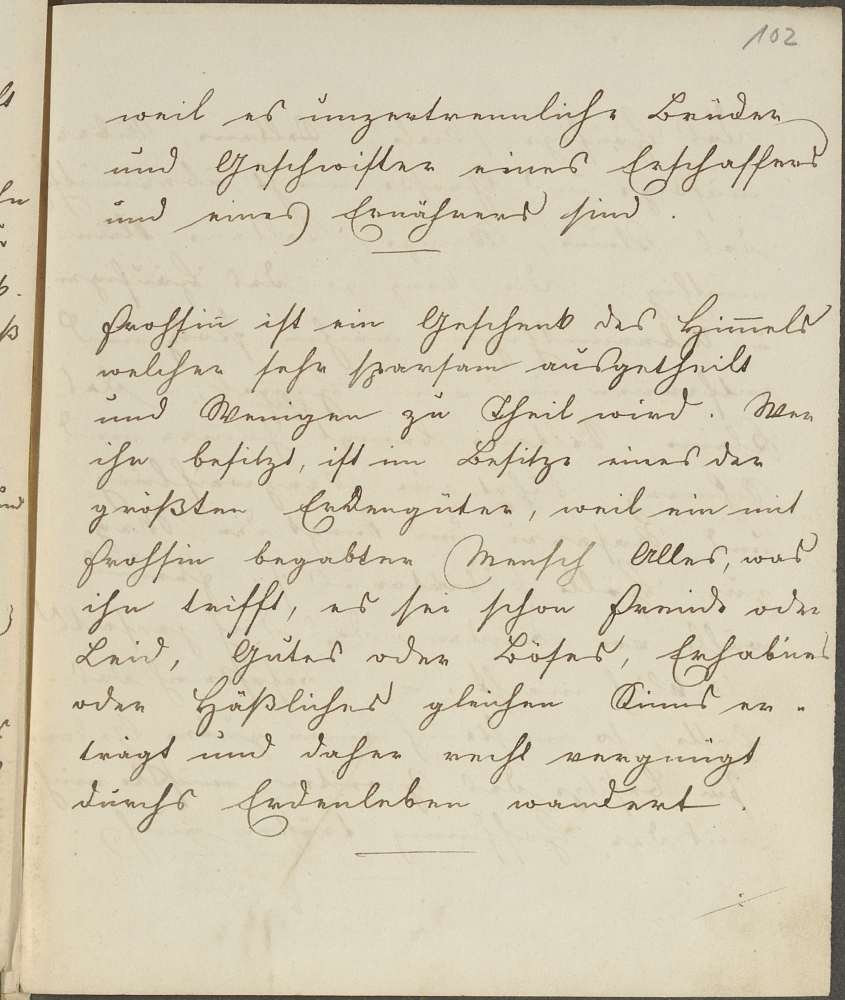 102
weil es unzertrennliche Brüder
und Geschwister eines Erschaffers
und eines Ernährers sind.
Frohsin̄ ist ein Geschenk des Him̄els
welcher sehr sparsam ausgetheilt
und Wenigen zu Theil wird. Wer
ihn besitzt, ist im Besitze eines der
größten Erdengüter, weil ein mit
Frohsin begabter Mensch Alles, was
ihn trifft, es sei schon Freude oder
Leid, Gutes oder Böses, Erhab'nes
oder Häßliches gleichen Sinns er-
trägt und daher recht vergnügt
durchs Erdenleben wandert.